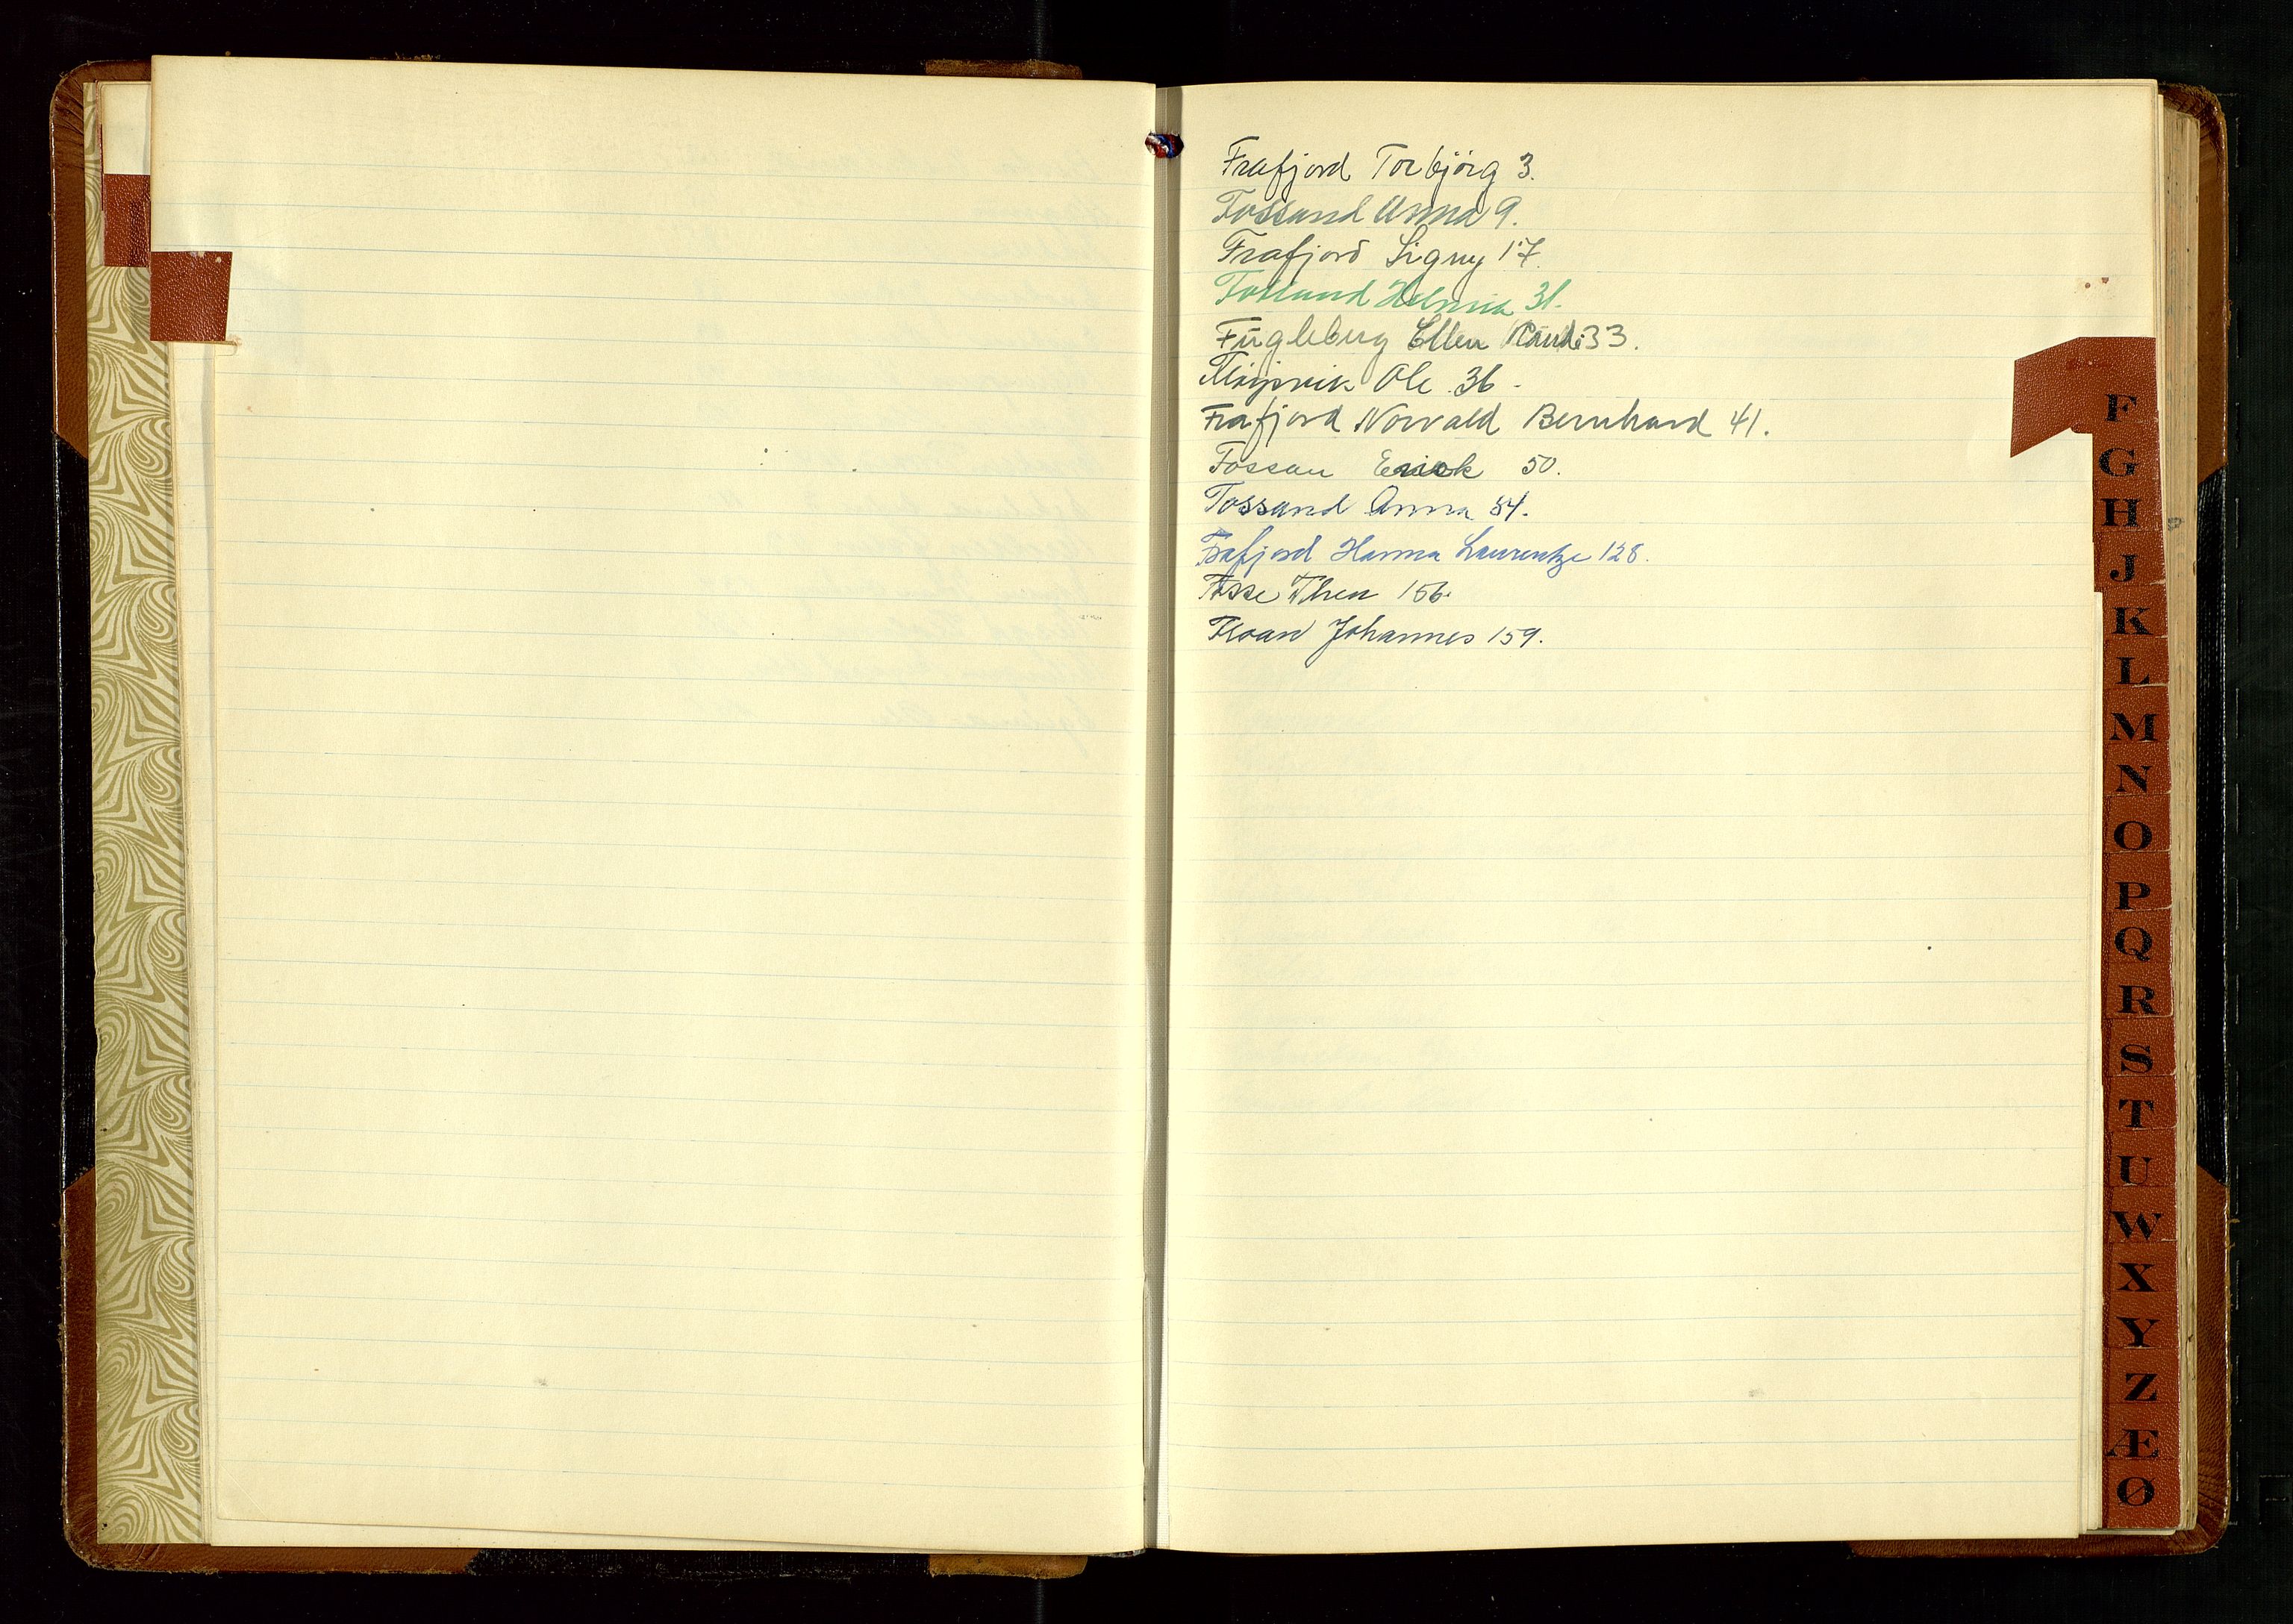 Frafjord Torbjörg 3.
Fossand Anna 9.
Frafjord Signy 17.
Fossand Helmia 31.
Fugleberg Ellen Randi 33.
Fløysvik Ole 36.
Frafjord Norvald Bernhard 41.
Fossan Erick 50.
Fossand Anna 54.
Frafjord Hanna Laurentze 128.
Fosse Theu 156.
Floan Johannes 159.
F
G
H
J
K
L
M
N
O
P
Q
R
S
T
U
W
X
Y
Z
Æ
Ø